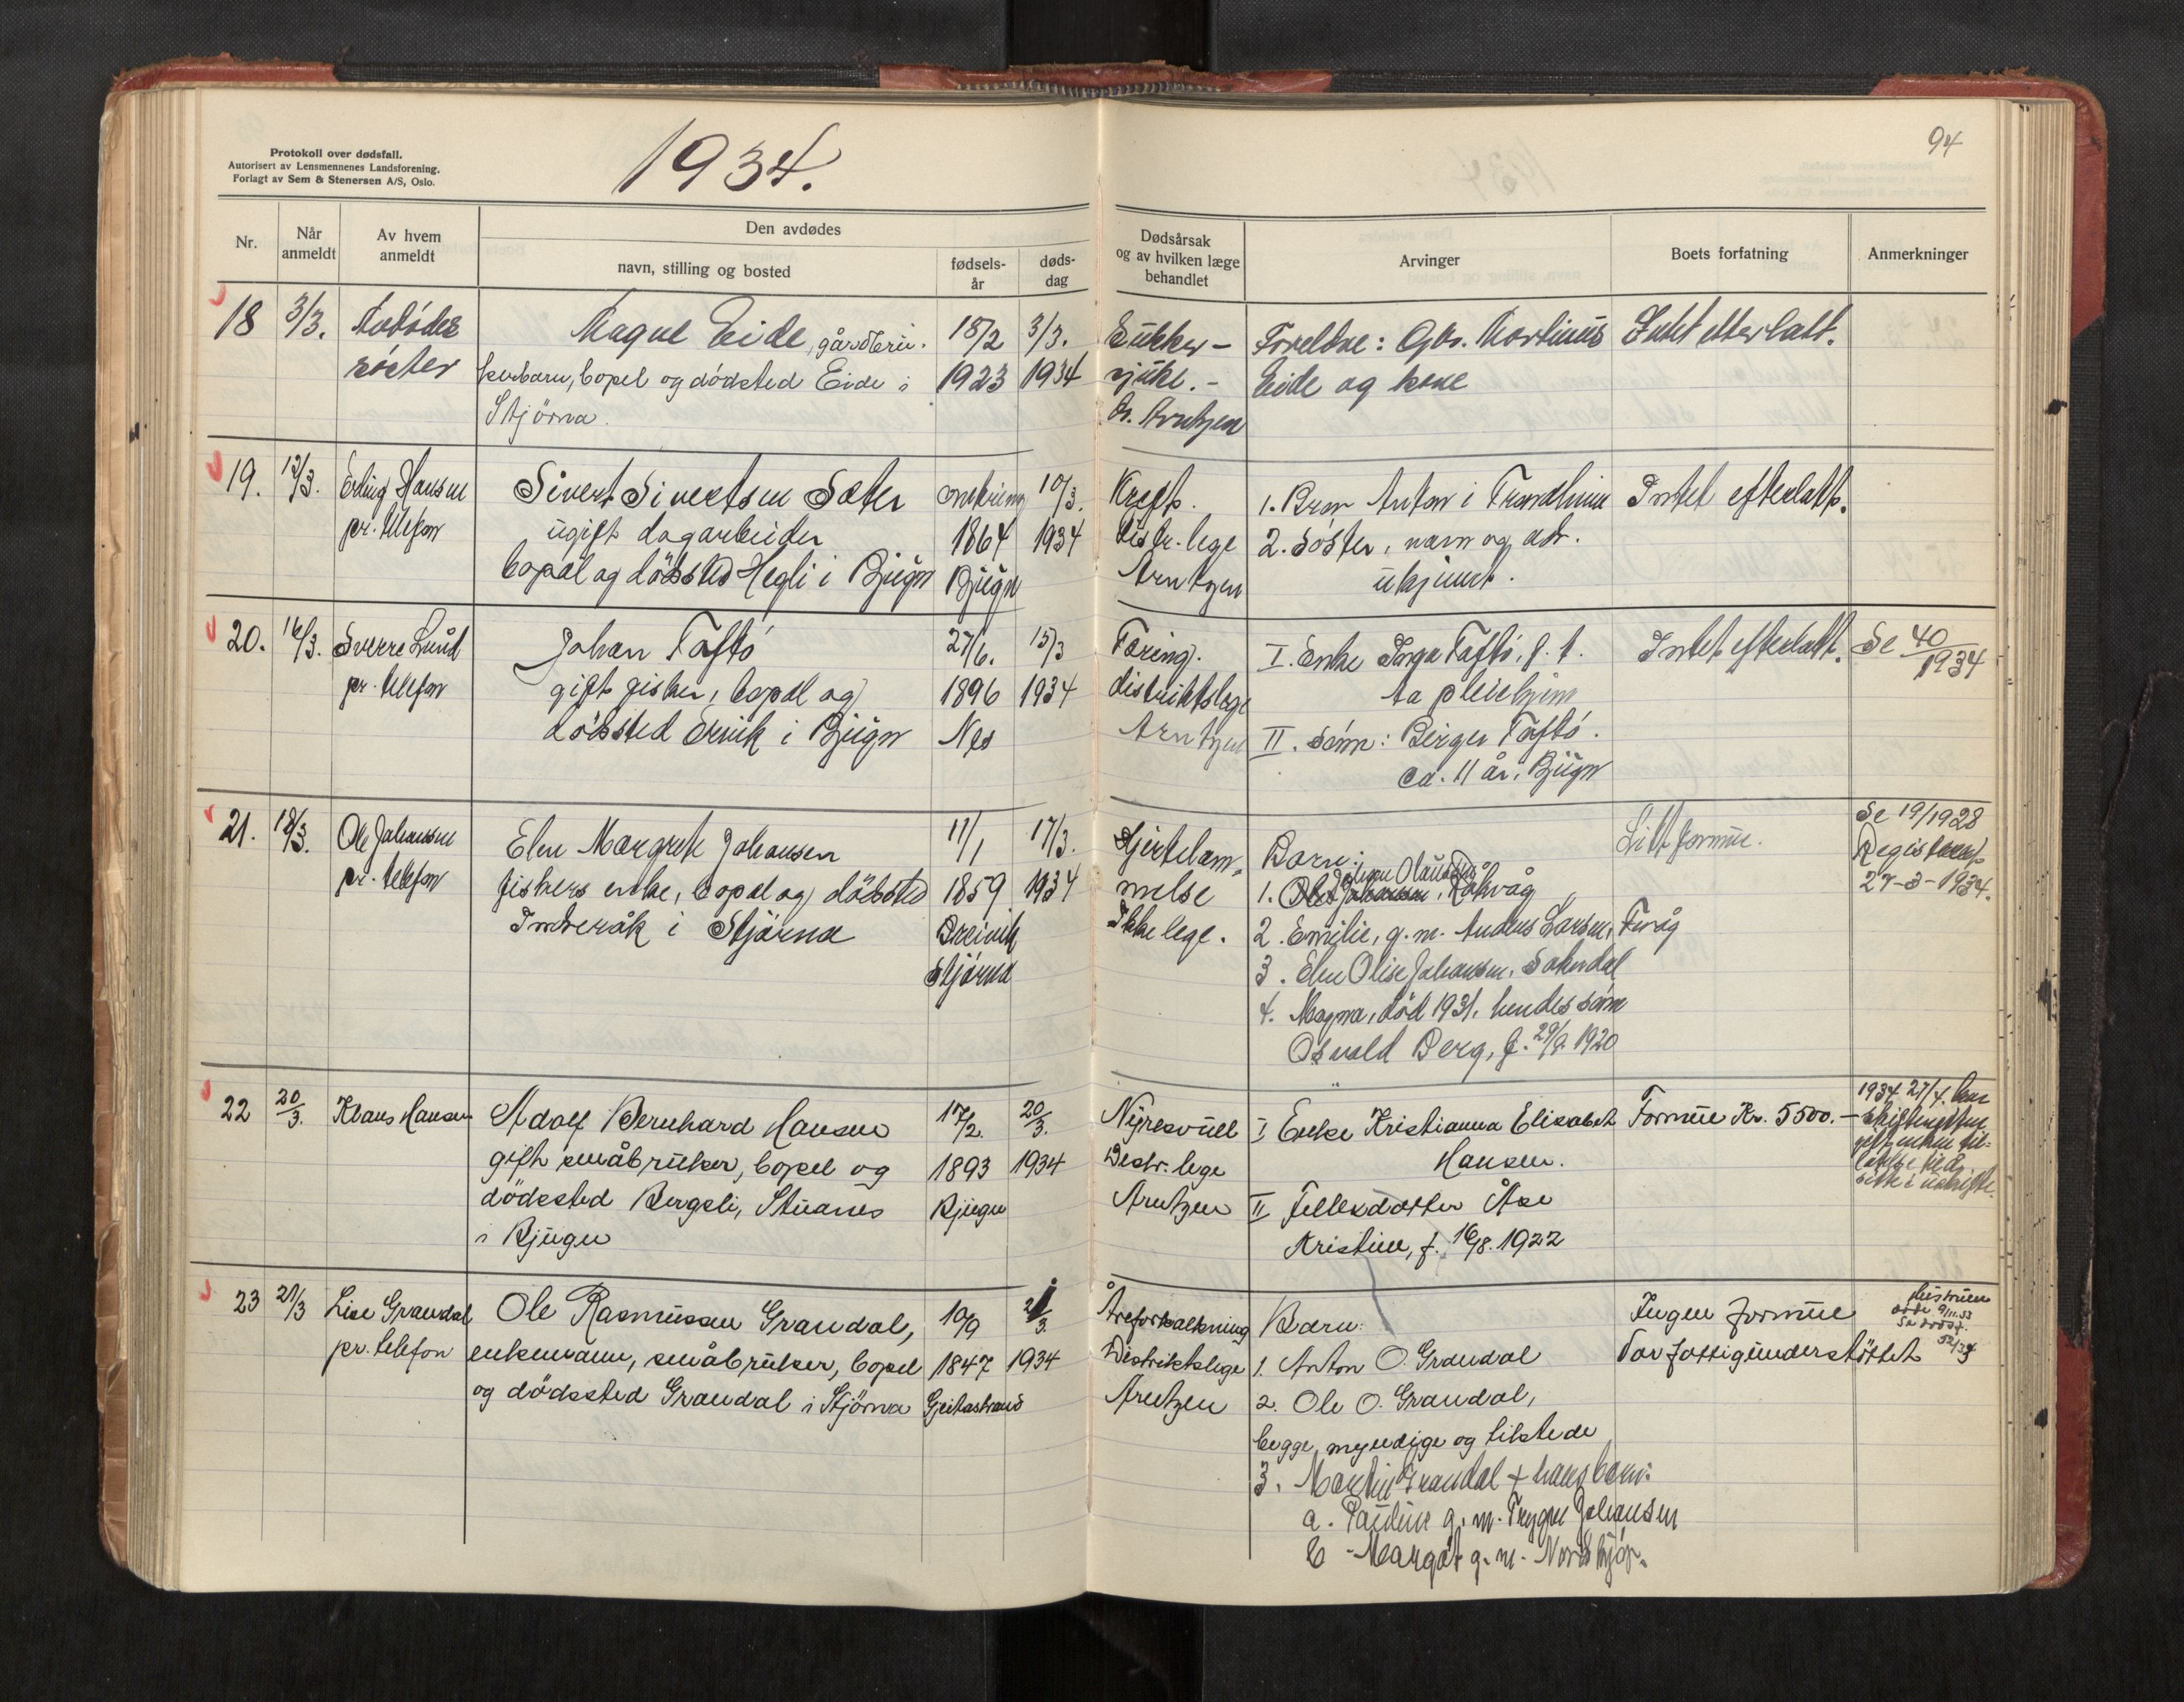 Protokoll over dødsfall.
Autorisert av Lensmennenes Landsforening.
Forlagt av Sem & Stenersen A/S, Oslo.
1934.
94
Nr.
Når anmeldt
Av hvem anmeldt
Den avdødes
navn, stilling og bosted
fødsels-år
døds-dag
Dødsårsak og av hvilken læge behandlet
Arvinger
Boets forfatning
Anmerkninger
18
3/3.
Avdødes
søster
Magne Eide, gårdbru-
kerbarn, bopel og dødsted Eide i
Stjörna.
18/2
1923
3/3.
1934
Sukker-
sjuke.-
Dr. Arntzen
Foreldre: Gbr. Martinus
Eide og kone
Intet etterlatt.
19.
12/3.
Erling Hansen
pr. telefon
Sivert Sivertsen Sæter
ugift dagarbeider
bopæl og dödssted Hegli i Bjugn
omkring
1864
Bjugn
10/3.
1934
Kreft.
Distr. lege
Arntzen
1. Bror Anton i Trondheim
2. Söster, navn og adr.
ukjent.
Intet efterlatt.
20.
16/3.
Sverre Lund
pr. telefon
Johan Taftó
gift fisker, bopæl og
dödssted Ervik i Bjugn
27/6.
1896
Nes
15/3
1934
Tæring.
distriktslege
Arntzen
I. Enke Inga Taftó, f. t.
på pleiehjem
II. Sönn: Birger Taftó.
ca. 11 år, Bjugn
Intet efterlatt.
Se 40/1934
21.
18/3.
Ole Johansen
pr. telefon
Elen Margrete Johansen
fiskers enke, bopæl og dödssted
Inderåk i Stjörna
11/1
1859
Breivik
Stjörna
17/3.
1934
Hjertelam-
melse
Ikke lege.
Barn:
1. Råkvåg
2. Emilie, g. m. Anders Larsen, Fevåg
3. Elen Olise Johansen, Sökndal
4. Magna, död 1931, hendes sönn
Osvald Berg, f. 29/9. 1920
Litt formue.
Se 19/1928
Registrert
27-3-1934.
22
20/3.
Klaus Hansen
Adolf Bernhard Hansen
gift småbruker, bopel og
dödssted Bergsli, Stuanes
i Bjugn
17/2.
1893
Bjugn
20/3.
1934
Nyresvull
Distr. lege
Arntzen
I Enke Kristianna Elisabet
Hansen.
II Fellesdatter Åse
Kristine, f. 16/8. 1922
Formue Kr. 5500.-
1934 27/4. har
skifteretten
gitt enken til-
latelse til å
sitte i uskifte.
23
21/3
Lise Grandal
pr. telefon
Ole Rasmussen Grandal,
enkemann, småbruker, bopel
og dödssted Grandal i Stjörna
10/9
1847
Geitastrand
21/3.
1934
Åreforkalkning
Distriktslege
Arntzen
Barn:
1. Anton O. Grandal
2. Ole O. Grandal,
begge myndige og tilstede
3. Martin Grandal + hans barn:
a. Pauline g. m. Trygve Johansen
b - Margot g. m. Nordskjör.
Ingen formue
Var fattigunderstöttet
52/33